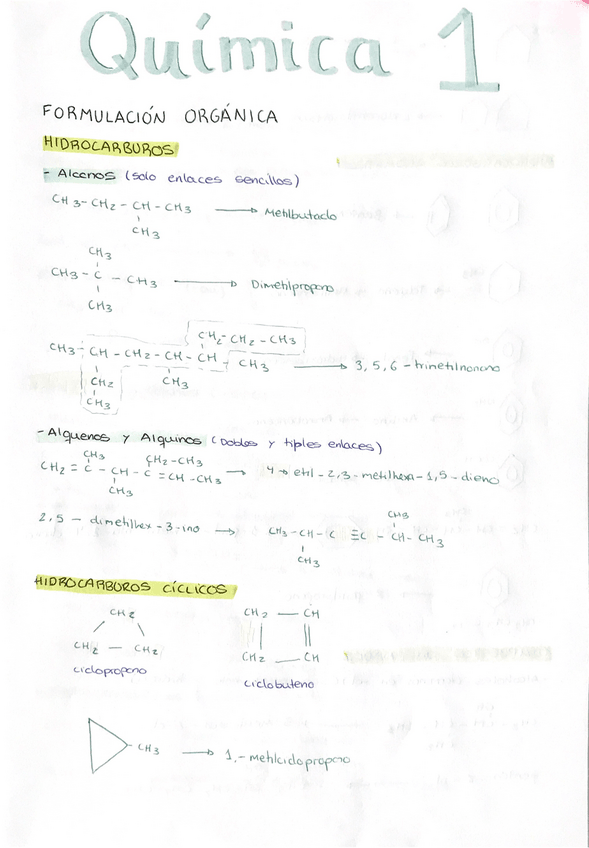 Química 1
FORMULACIÓN ORGÁNICA
HIDROCARBUROS
- Alcanos (solo enlaces sencillos)
CH3-CH2-CH-CH3 → Metilbutano
CH3
CH3
CH3-C-CH3 → Dimetilpropano
CH3
CH2-CH2-CH3
CH3-CH-CH2-CH-CH-CH3 → 3,5,6-trimetilnonano
CH2 CH3
CH3
- Alquenos y Alquinos (Dobles y tiples enlaces)
CH3 CH2-CH3
CH2=C-CH-C=CH-CH3 → 4→etil-2,3-metilhexa-1,5-dieno
CH3
CH3
2,5-dimetilhex-3-ino → CH3-CH-C≡C-CH-CH3
CH3
HIDROCARBUROS CÍCLICOS
CH2 CH2 — CH
CH2 — CH2 CH2 — CH
ciclopropano
ciclobuteno
CH3 → 1,-metilciclopropano